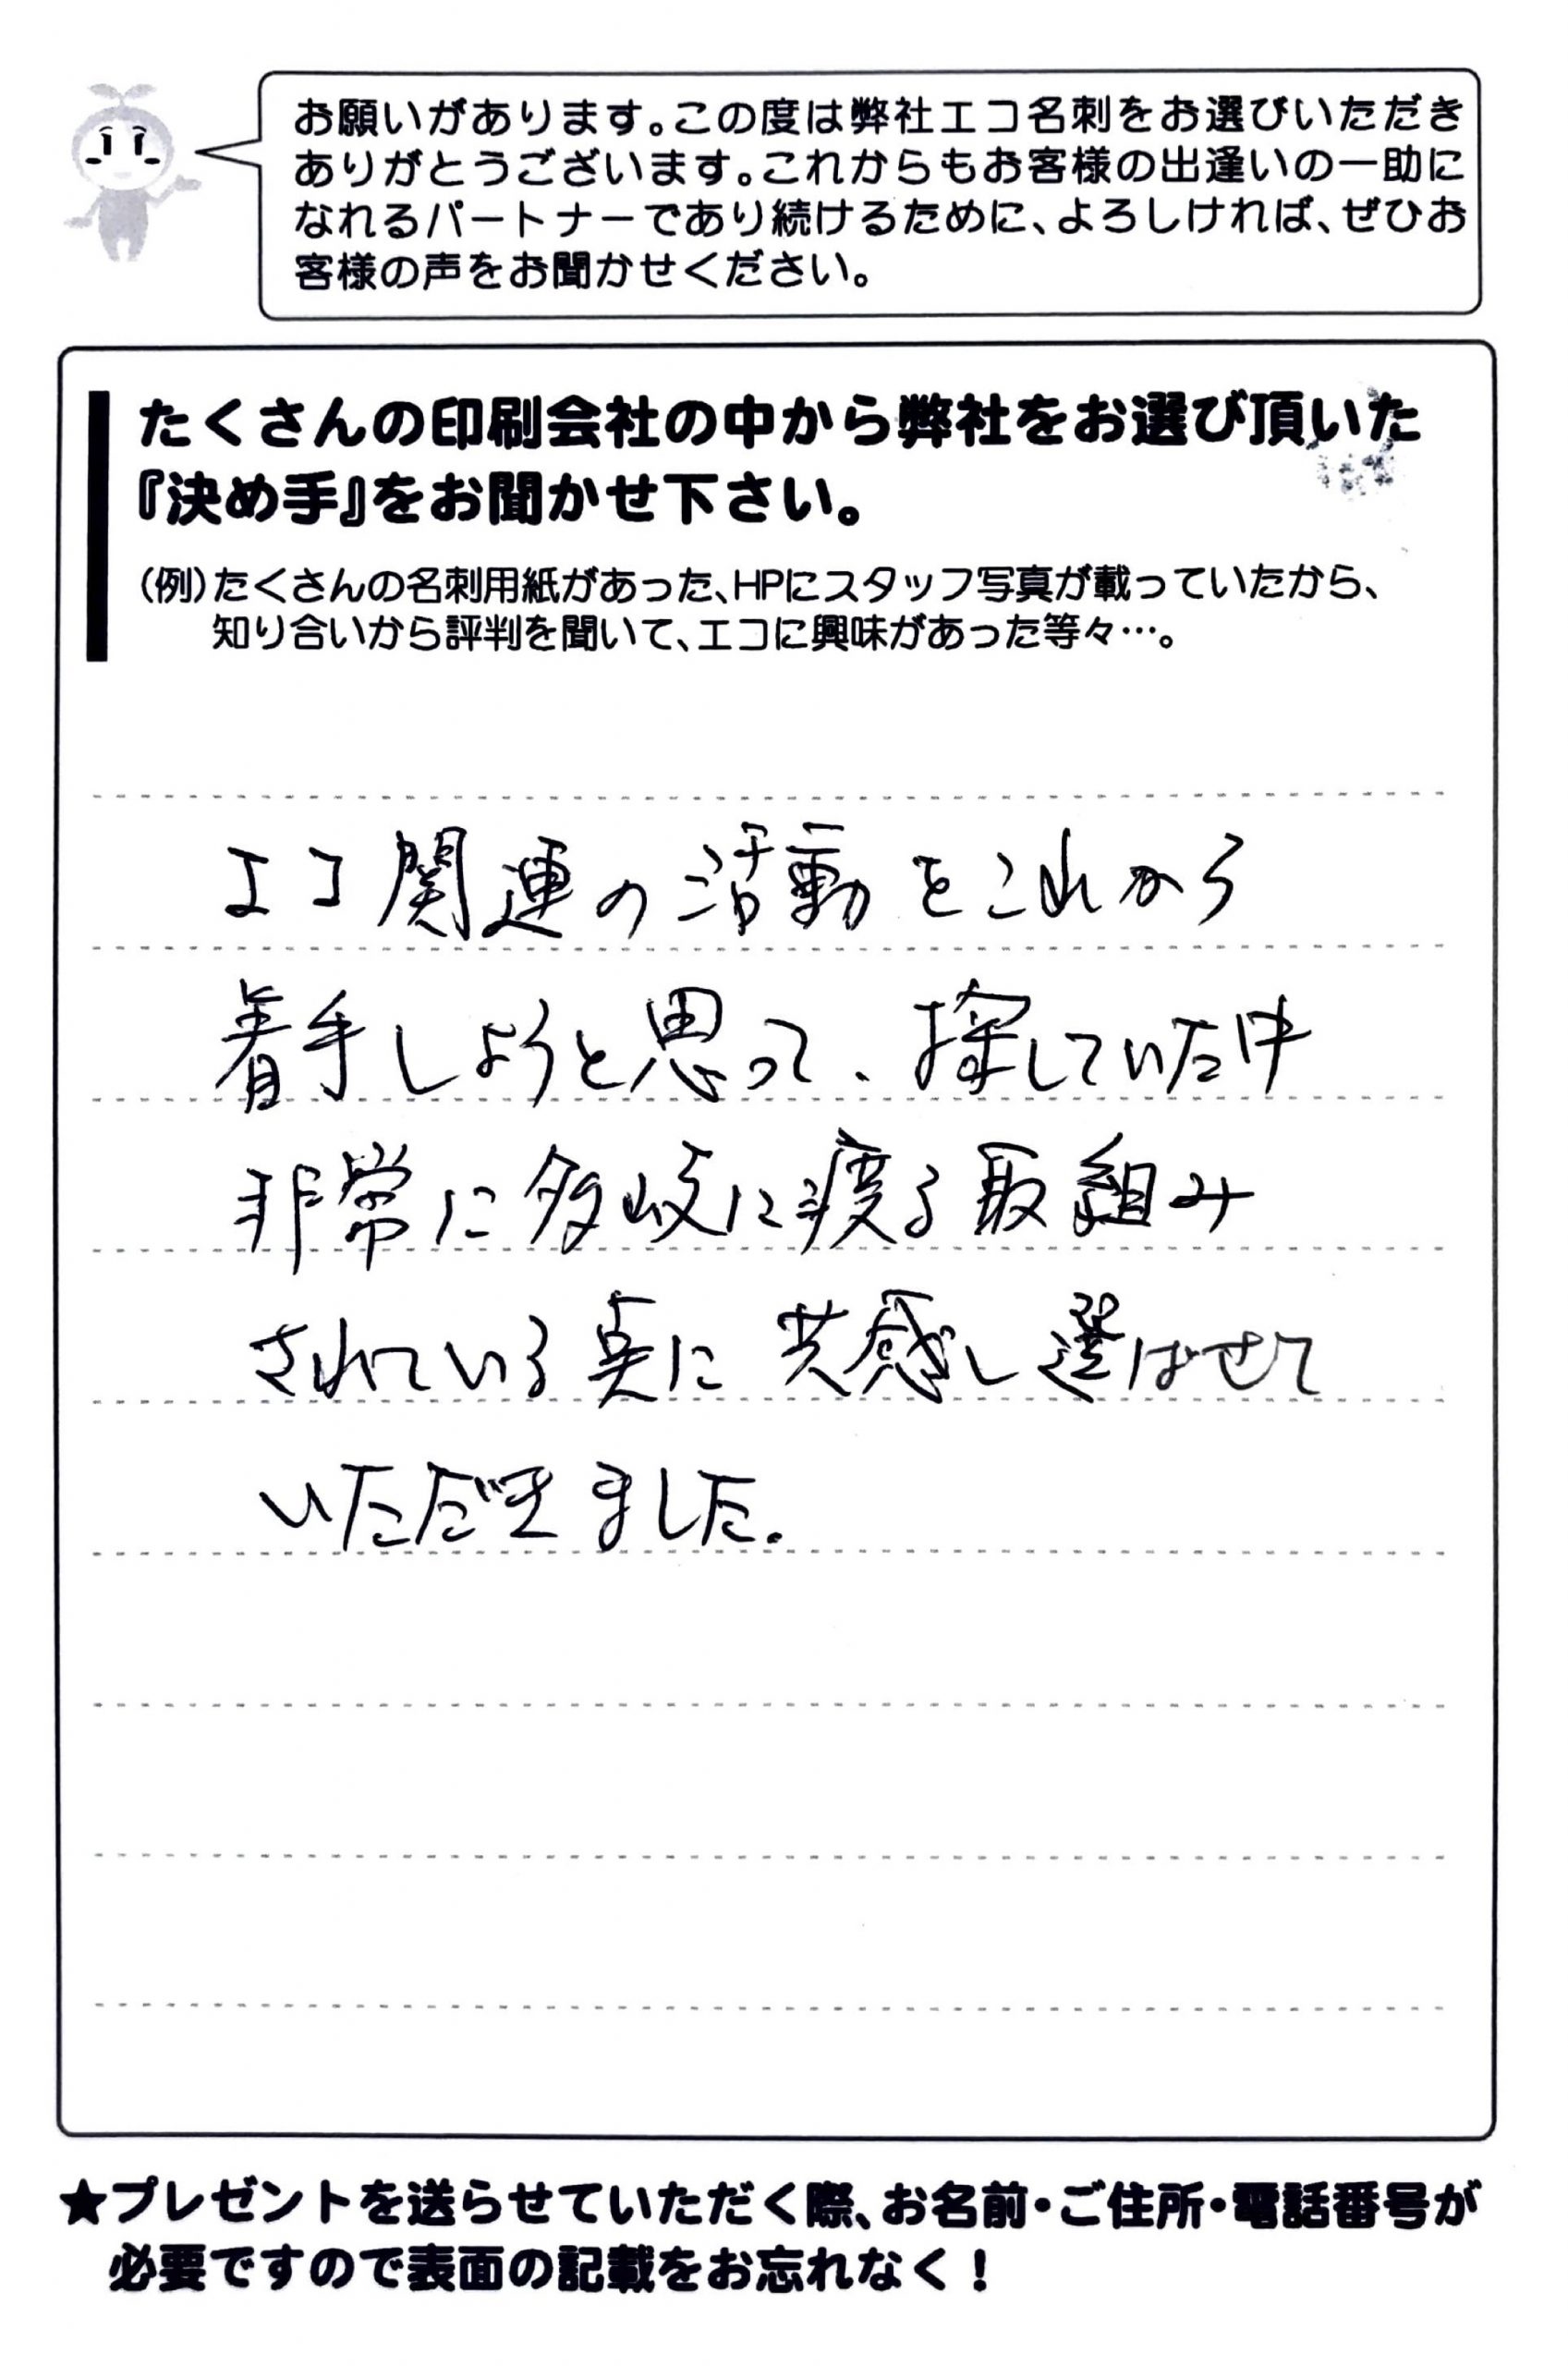 お願いがあります。この度は弊社エコ名刺をお選びいただき
ありがとうございます。これからもお客様の出逢いの一助に
なれるパートナーであり続けるために、よろしければ、ぜひお
客様の声をお聞かせください。
たくさんの印刷会社の中から弊社をお選び頂いた
『決め手』をお聞かせ下さい。
(例)たくさんの名刺用紙があった、HPにスタッフ写真が載っていたから、
知り合いから評判を聞いて、エコに興味があった等々…。
エコ関連の活動をこれから
着手しようと思って、探していた中
非常に多岐に渡る取組み
されている点に共感し選ばせて
いただきました。
★プレゼントを送らせていただく際、お名前・ご住所・電話番号が
必要ですので表面の記載をお忘れなく！